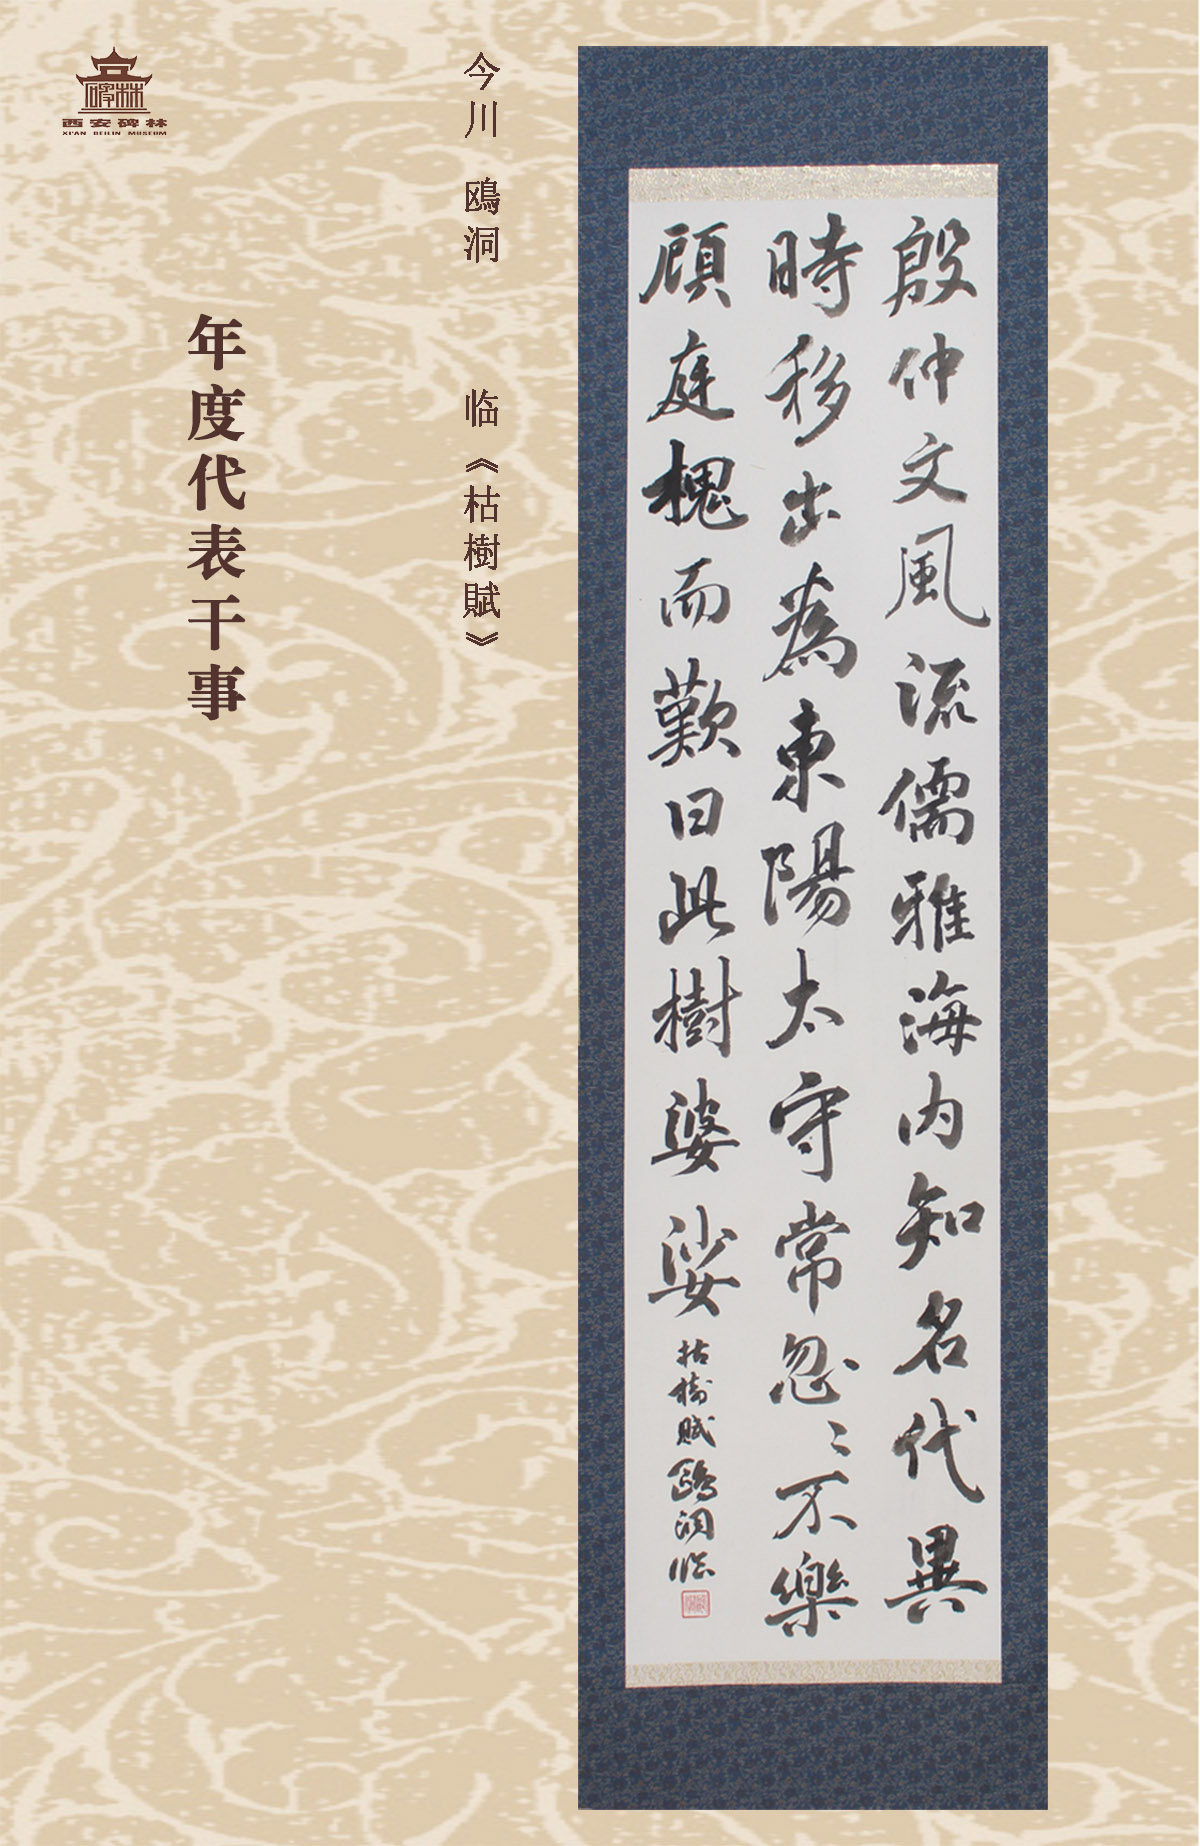 殷仲文風流儒雅海内知名代異
時移出為東陽太守常忽〻不樂
顧庭槐而歎曰此樹婆娑
枯樹賦鷗洞临
今川 鷗洞 临《枯樹賦》
年度代表干事
碑林
西安碑林
XI'AN BEILIN MUSEUM